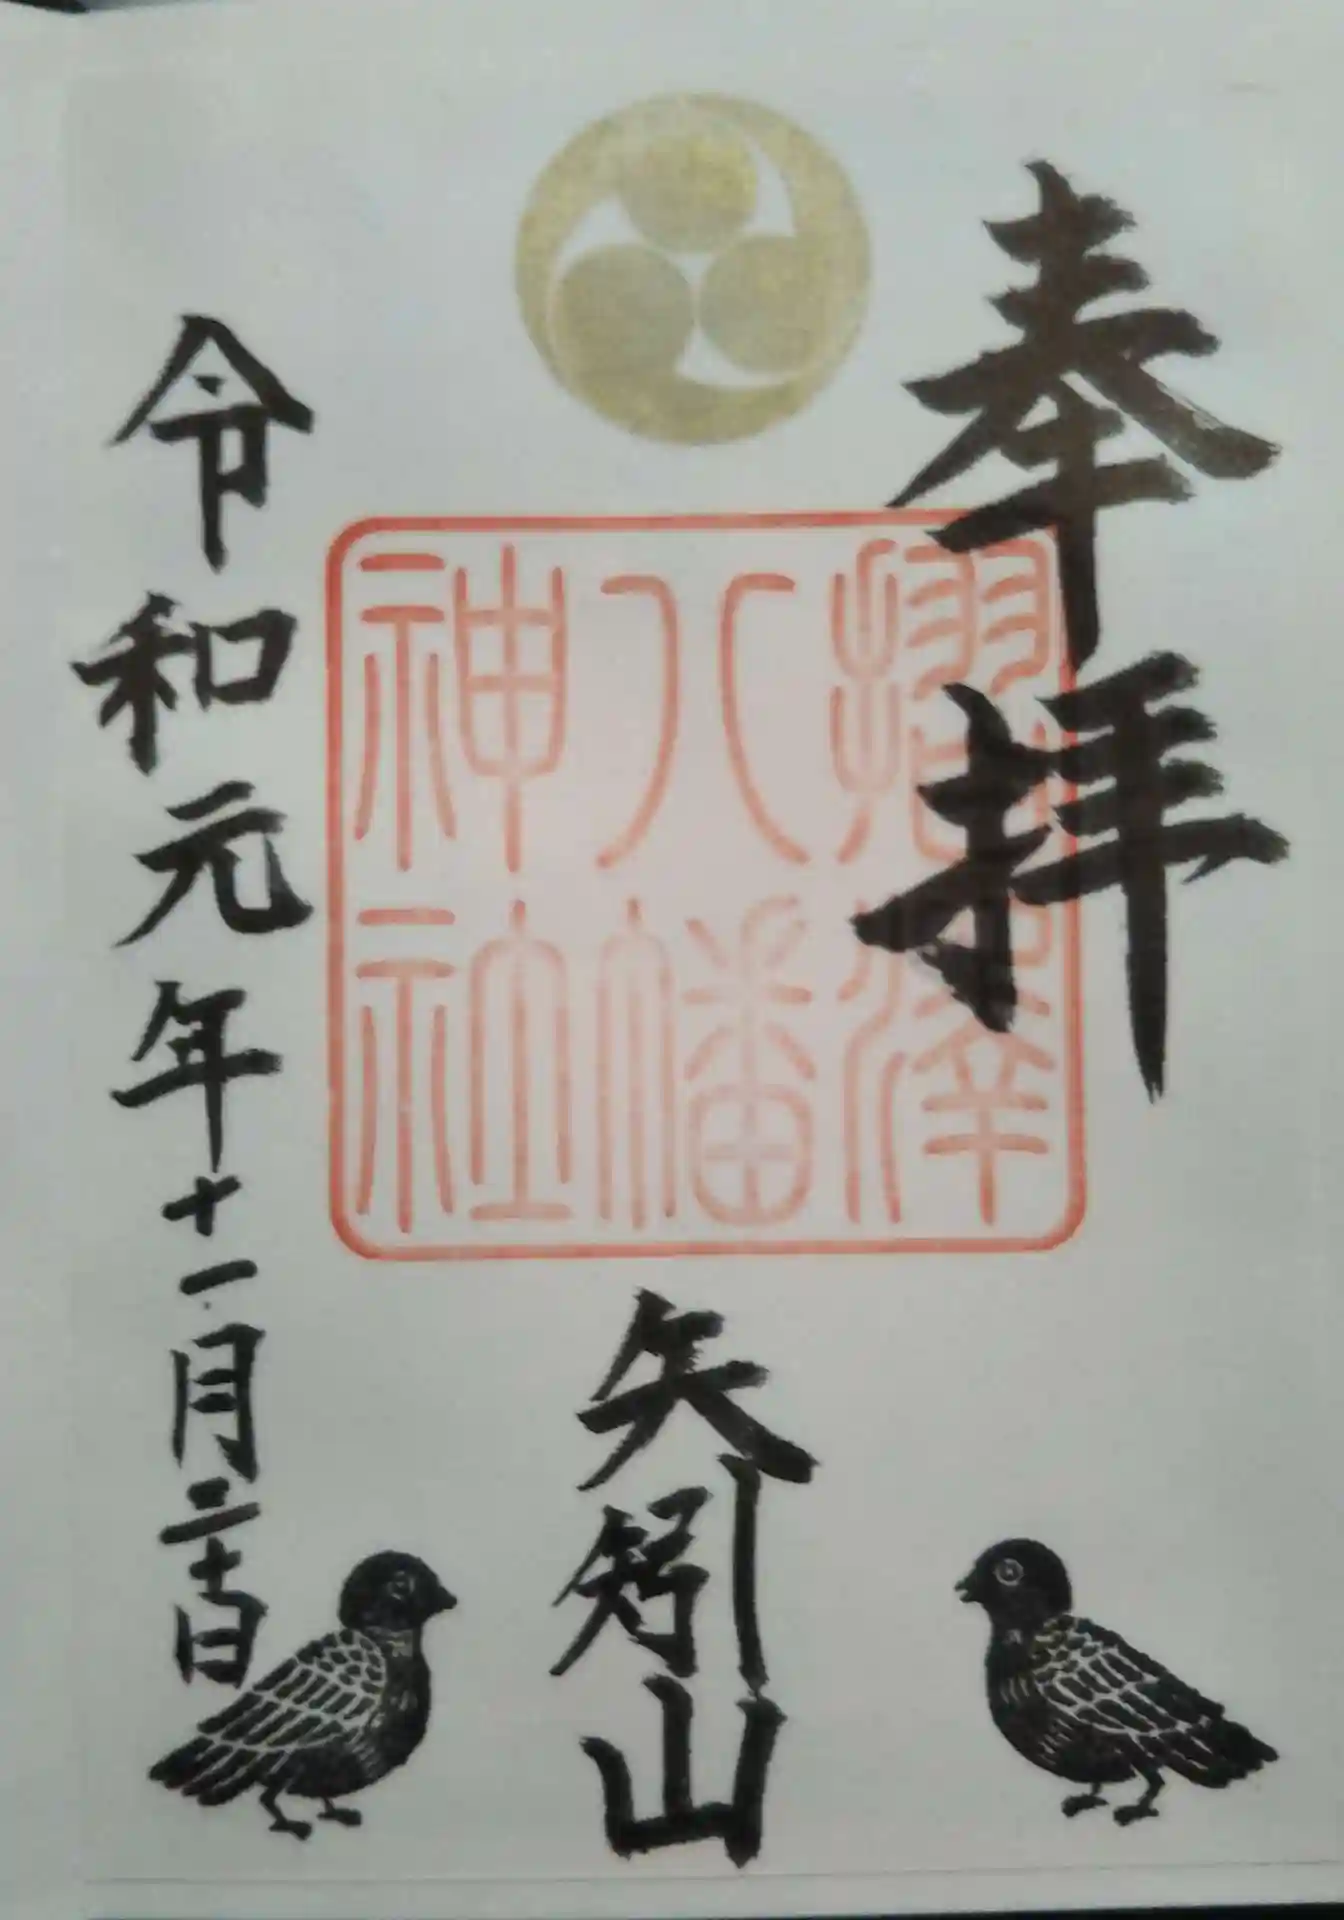 奉拝
摺澤
八幡
神社
矢矧山
令和元年十一月三十日